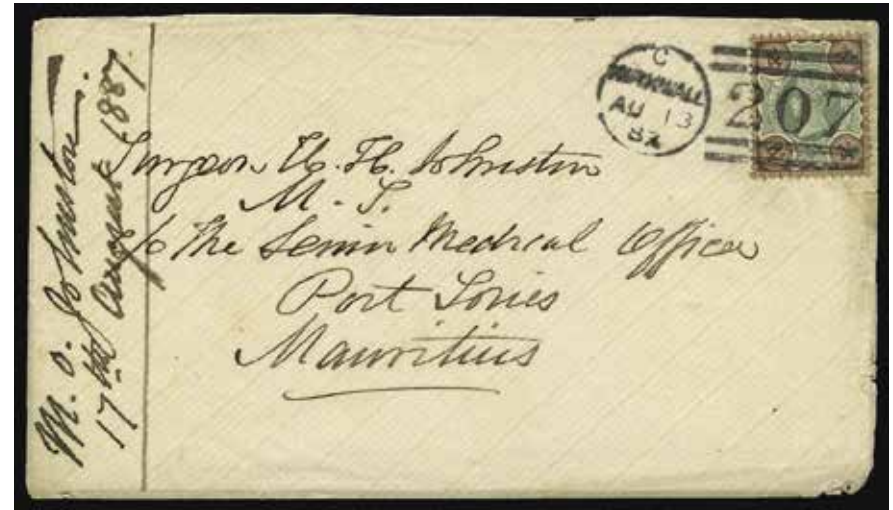 M. O. Johnston.
17th August 1887.
C
KIRKWALL
AU 13
87
207
Surgeon H. H. Johnston
M. S.
c/o The Senior Medical Officer
Port Louis
Mauritius